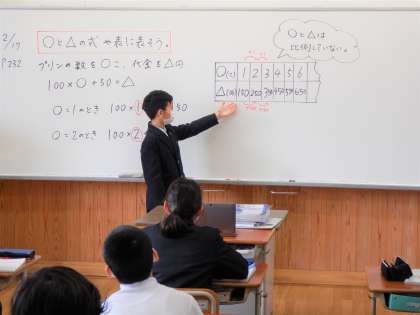 2/17
P232
○と△の式や表に表そう。
プリンの数を○こ、代金を△円
100×○+50=△
○=1のとき 100×1 50
○=2のとき 100×2
○と△は
比例していない。
○(こ) 1 2 3 4 5 6
△(円) 150 250 350 450 550 650